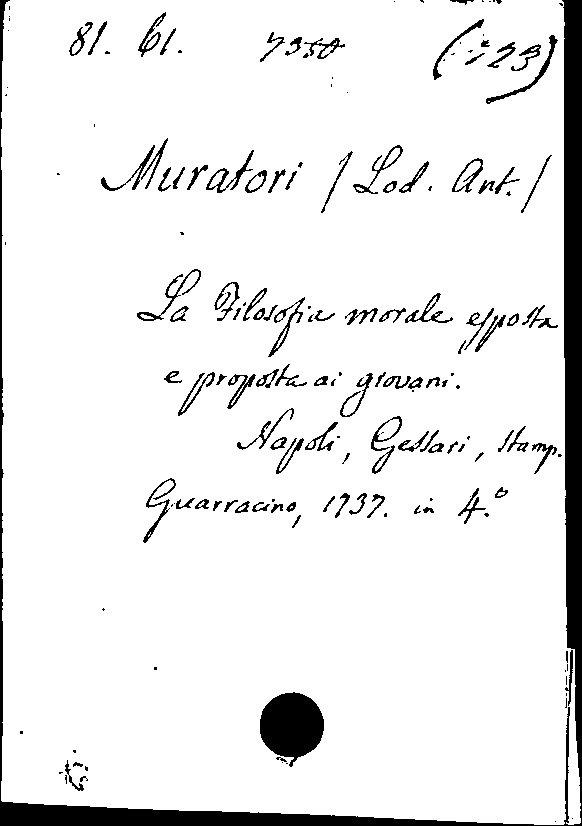 81. 61. 7350 (123)
Muratori / Lod. Ant. /
La Filosofia morale esposta
e proposta ai giovani.
Napoli, Gessari, stamp.
Guarracino, 1737. in 4.º